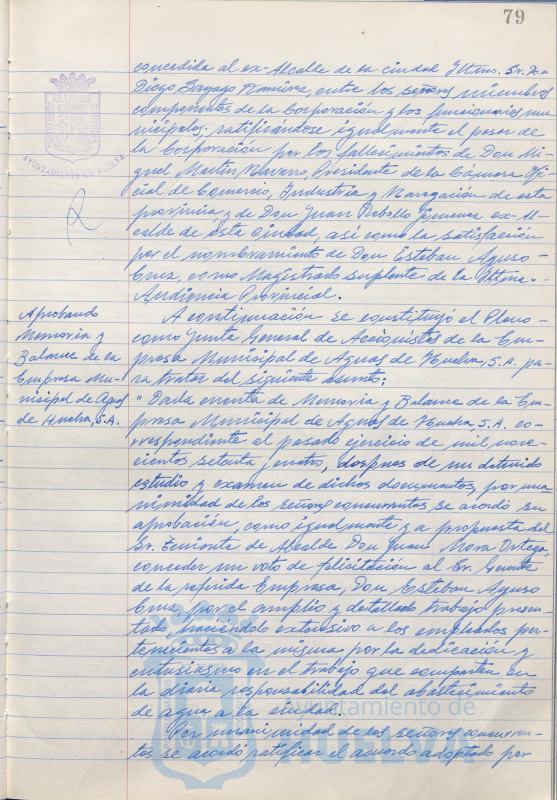 79
concedida al ex-Alcalde de la ciudad Iltmo. Sr. Don
Diego Sayago Ramírez, entre los señores miembros
componentes de la Corporación y los funcionarios mu
nicipales; ratificandose igualmente el pesar de
la Corporación por los fallecimientos de Don Mi-
guel Martín Navarro, Presidente de la Cámara Ofi
cial de Comercio, Industria y Navegación de esta
provincia y de Don Juan Rebollo Jimenez ex-Al-
calde de esta Ciudad, así como la satisfacción
por el nombramiento de Don Esteban Ayuso-
Cruz, como Magistrado suplente de la Iltma.-
Audiencia Provincial.
AYUNTAMIENTO DE HUELVA
Aprobando
Memoria y
Balance de la
Empresa Mu-
nicipal de Aguas
de Huelva, S.A.
A continuación se constituyó el Pleno-
como Junta General de Accionistas de la Em-
presa Municipal de Aguas de Huelva, S.A. pa-
ra tratar del siguiente asunto:
"Dada cuenta de Memoria y Balance de la Em-
presa Municipal de Aguas de Huelva, S.A. co-
rrespondiente al pasado ejercicio de mil nove-
cientos setenta y cuatro, despues de un detenido
estudio y examen de dichos documentos, por una
nimidad de los señores concurrentes se acordó su
aprobación, como igualmente y a propuesta del
Sr. Teniente de Alcalde Don Juan Mora Ortega,
conceder un voto de felicitación al Sr. Gerente
de la referida Empresa, Don Esteban Ayuso
Cruz, por el amplio y detallado trabajo presen-
tado, haciéndolo extensivo a los empleados per-
tenecientes a la misma por la dedicación y
entusiasmo en el trabajo que comparten en
la diaria responsabilidad del abastecimiento
de agua a la ciudad.
Por unanimidad de los señores concurren-
tes se acordó ratificar el acuerdo adoptado por
Ayuntamiento de
HUELVA